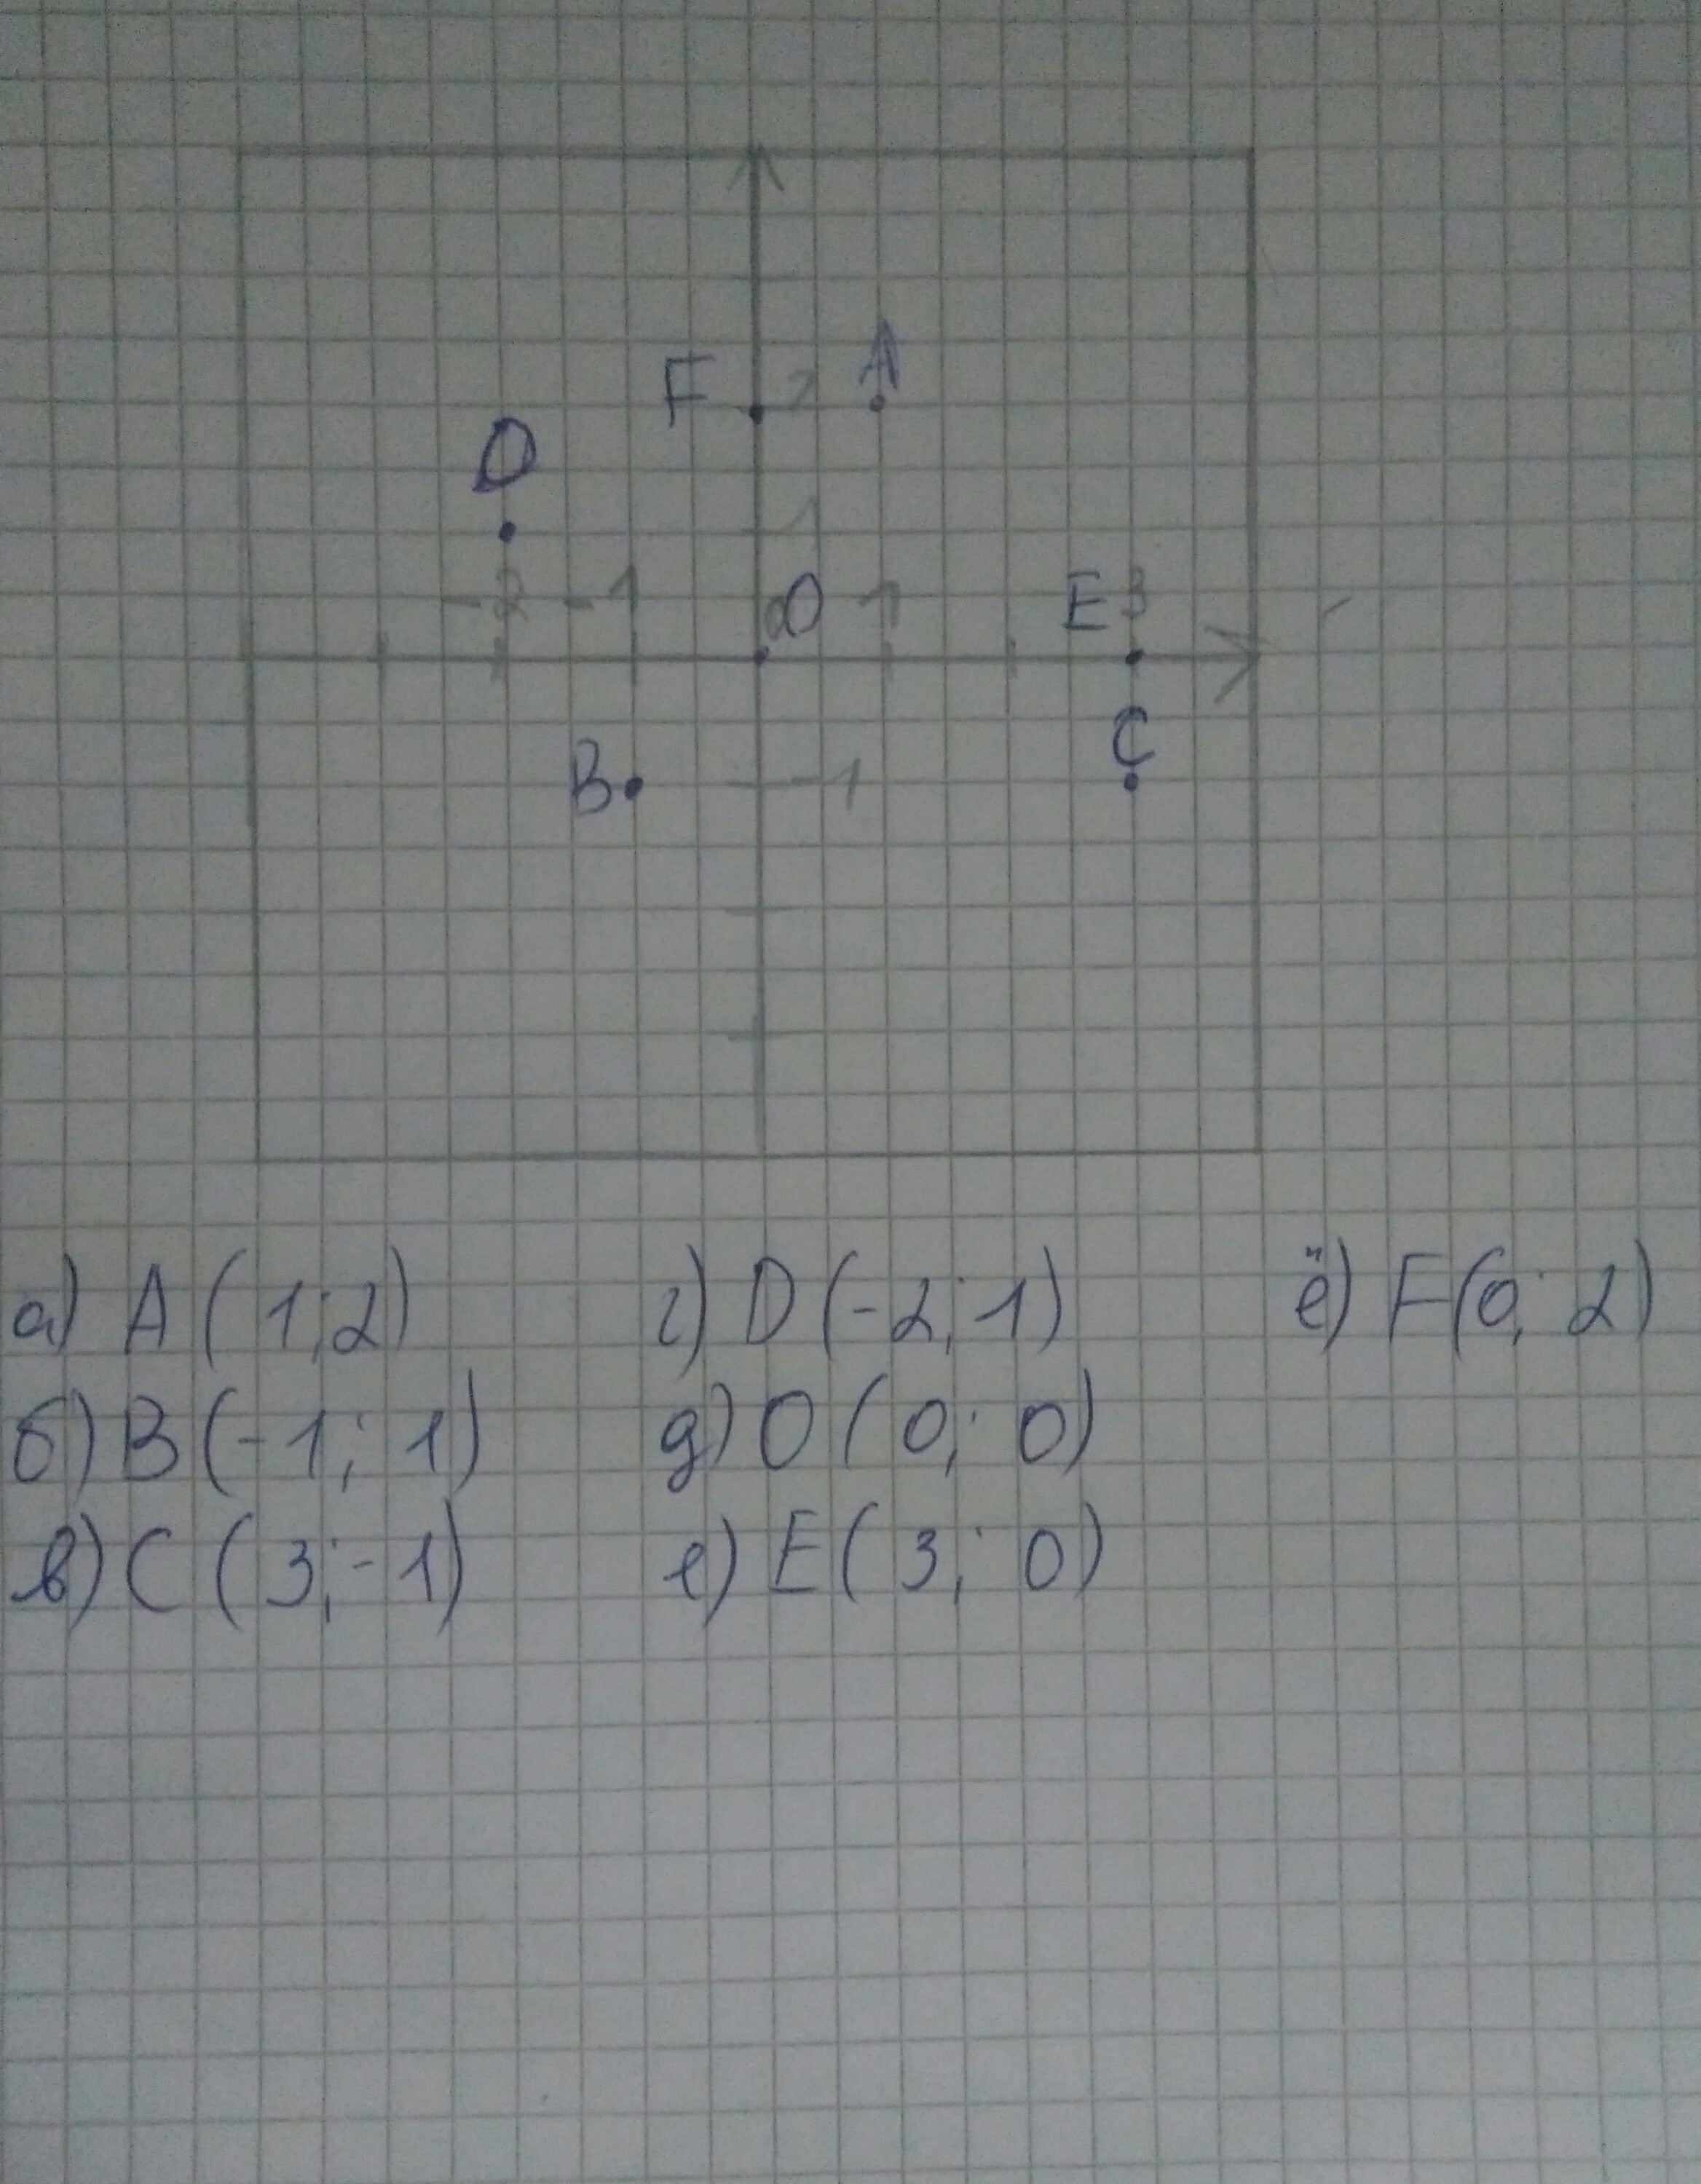 F 2 A
D
1
-2 -1 0 O 1 E 3
C
B -1
а) A (1; 2) г) D (-2; 1) ё) F (0; 2)
б) B (-1; 1) д) O (0; 0)
в) C (3; -1) е) E (3; 0)